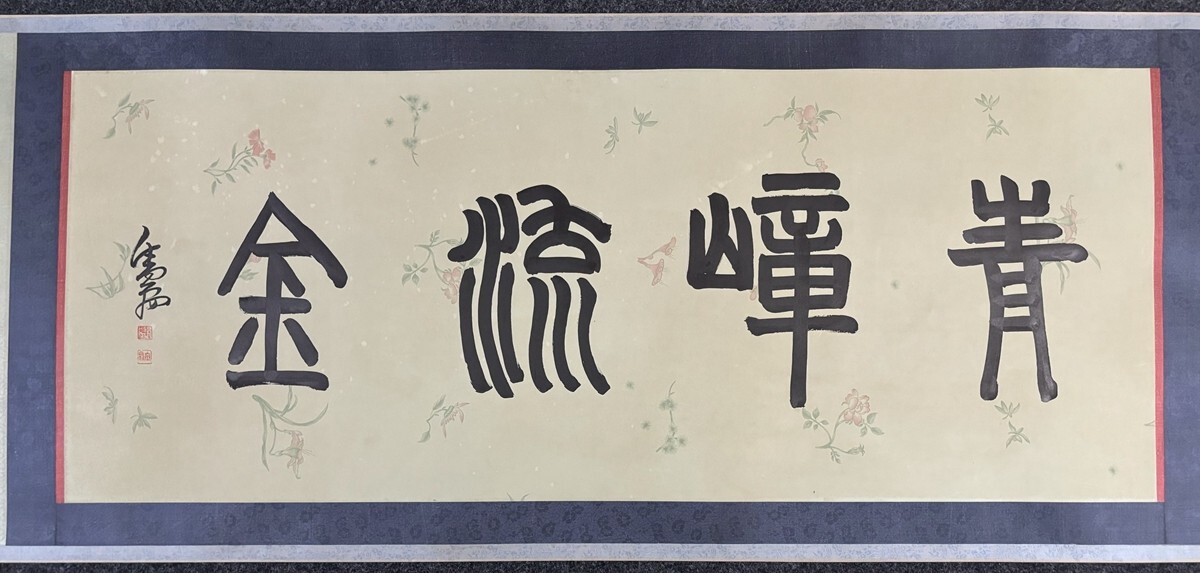 青嶂流金